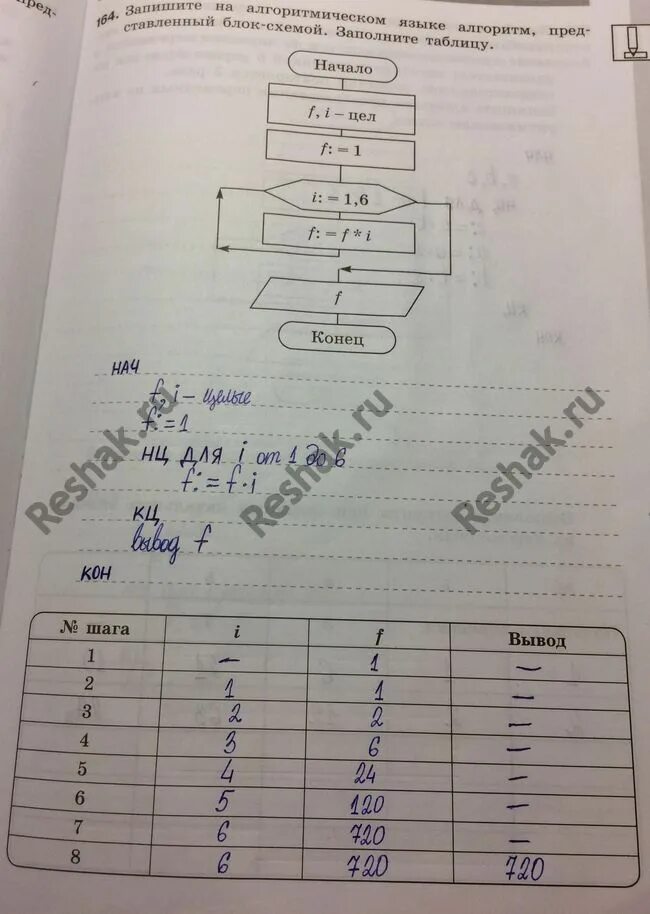 164. Запишите на алгоритмическом языке алгоритм, пред-
ставленный блок-схемой. Заполните таблицу.
Начало
f, i – цел
f: = 1
i: = 1,6
f: = f * i
f
Конец
НАЧ
f, i – целые
f: = 1
НЦ ДЛЯ i от 1 до 6
f: = f · i
КЦ
вывод f
КОН
Reshak.ru Reshak.ru Reshak.ru
№ шага i f Вывод
1 — 1 —
2 1 1 —
3 2 2 —
4 3 6 —
5 4 24 —
6 5 120 —
7 6 720 —
8 6 720 720